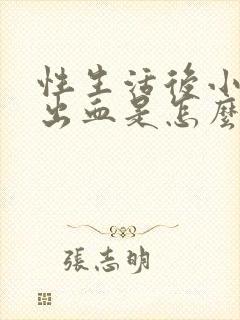 性生活後小
出血是怎麼
張志明